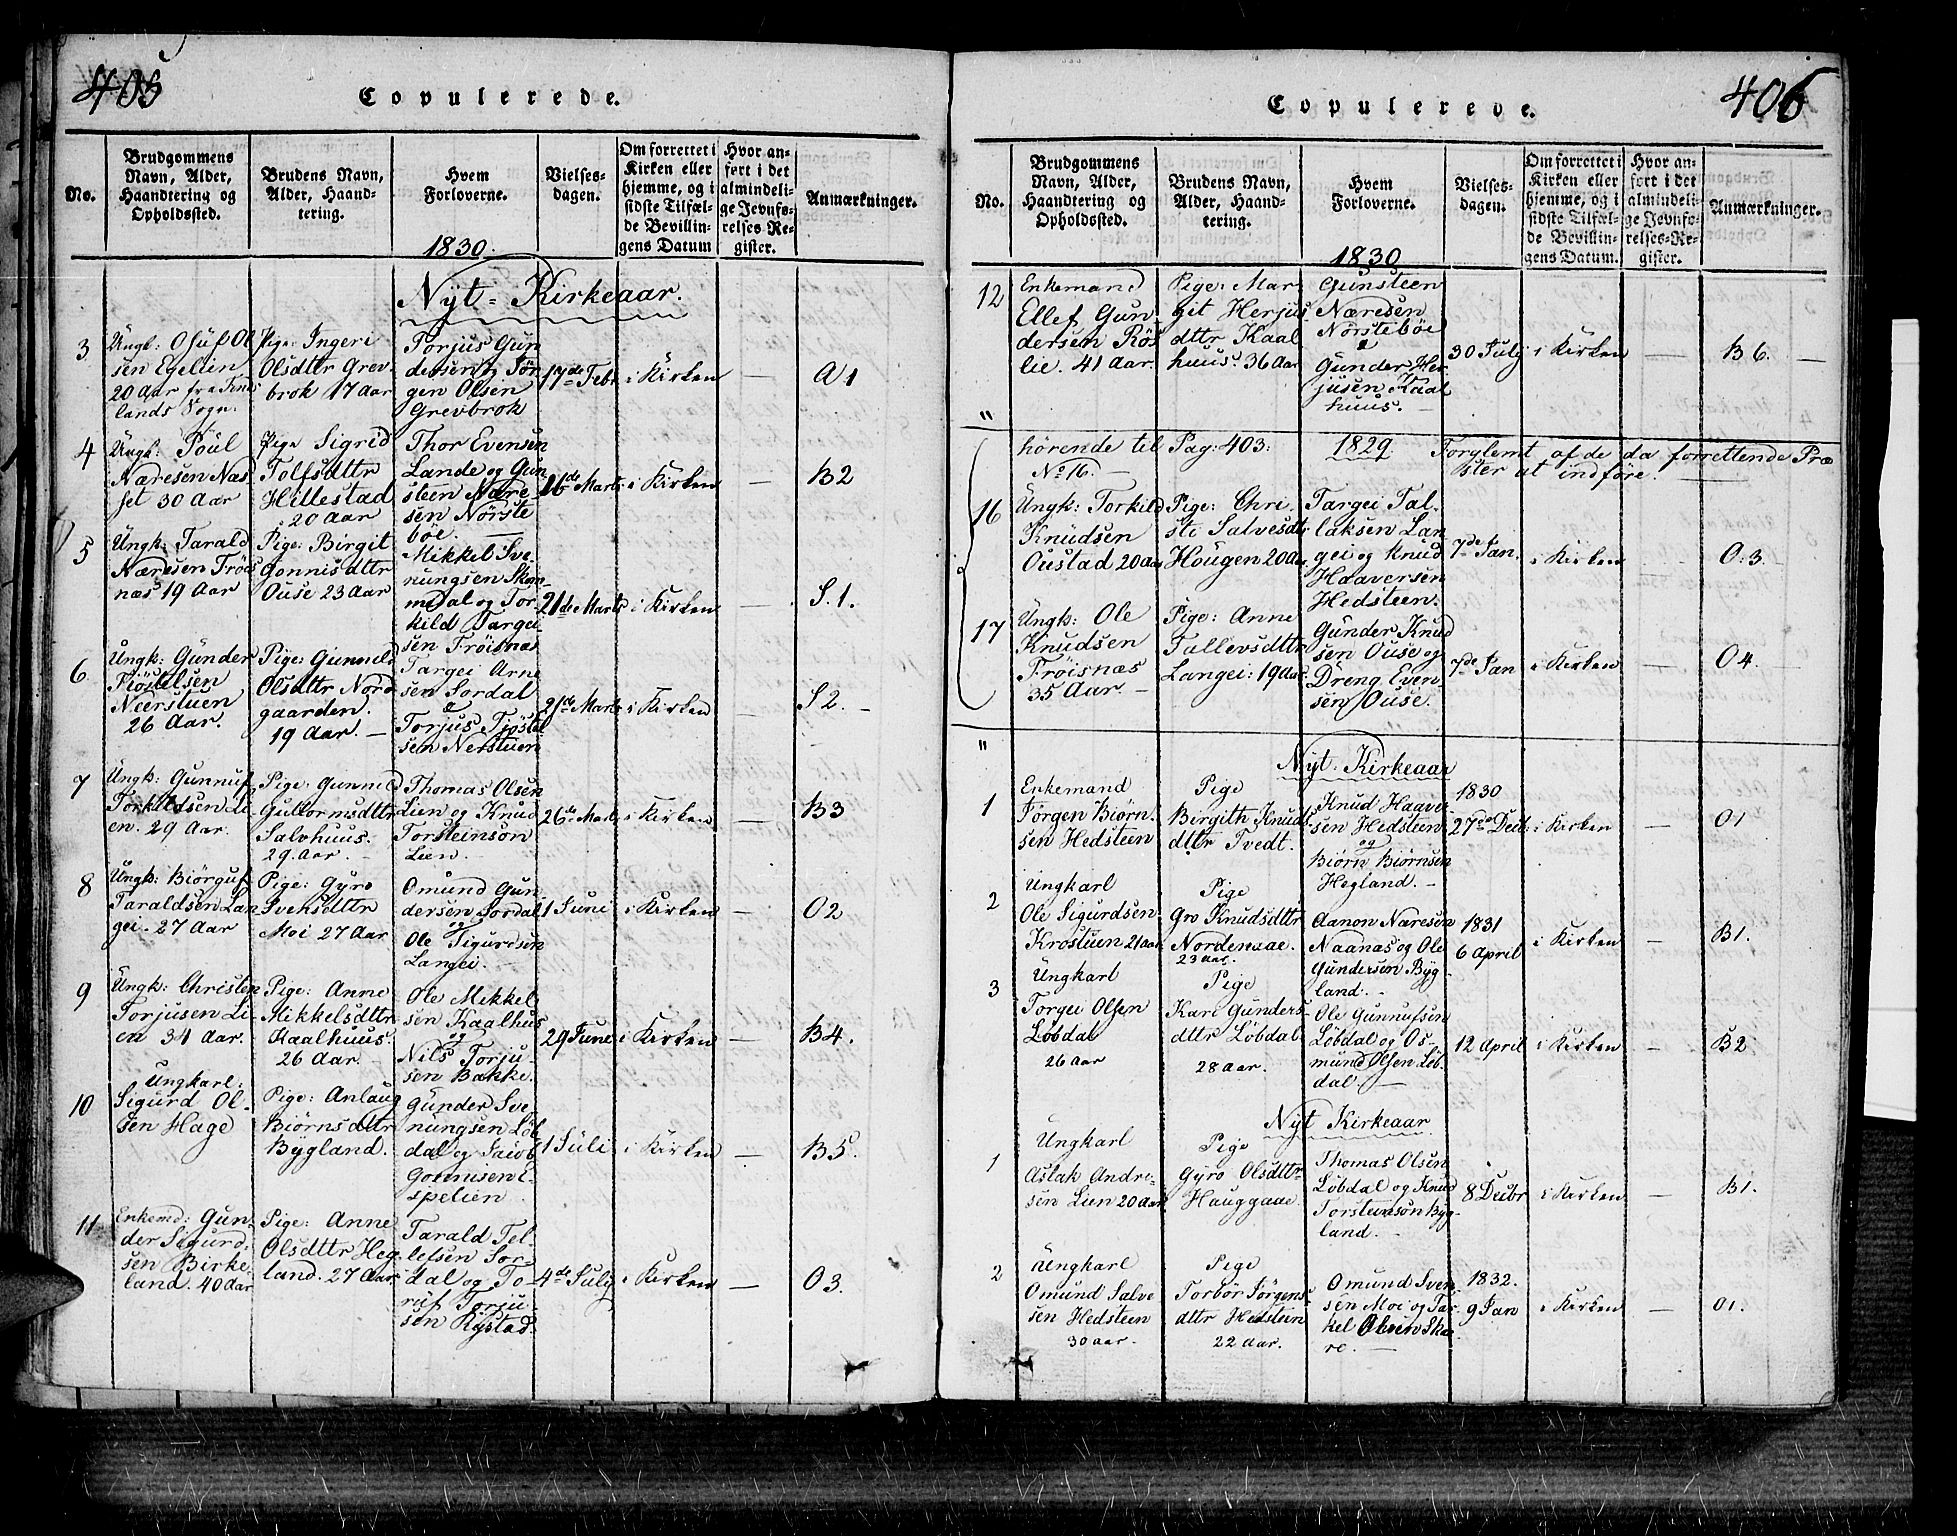 405
Copulerede.
No.
Brudgommens
Navn, Alder,
Haandtering og
Opholdssted.
Brudens Navn,
Alder, Haand-
tering.
Hvem
Forloverne.
1830.
Vielses-
dagen.
Om forrettet i
Kirken eller
hjemme, og i
sidste Tilfæl-
de Bevillin-
gens Datum
Hvor an-
ført i det
almindeli-
ge Jevnfø-
relses-Re-
gister.
Anmærkninger.
Nÿt-Kirkeaar.
3
Ungk: Osuf Ol
sen Egelien
20 Aar fra
lands Sogn.
Pige: Ingeri
Olsdttr Grev-
brok 17 aar
Torjus Gun
dersen og Jør
gen Olsen
Grevbrok
17de Febr
i Kirken
—
A 1
4
Ungk: Poul
Næresen Næs
set 30 Aar
Pige Sigrid
Tolfsdttr
Hillestad
20 aar
Thor Evensen
Lande og Gun
steen Nære-
sen Nørste
böe.
16de Marts
i Kirken
—
B2
5
Ungk: Tarald
Næresen Fröis
næs 19 Aar
Pige: Birgit
Gonnisdttr
Ouse 23 aar
Mikkel Sve
nungsen Skom
medal og Tor-
kild Targei-
sen Fröisnæs
21de Marts
i Kirken
—
S. 1.
6
Ungk: Gunder
Tiöstelsen
Nærstuen
26 Aar.
Pige: Gunnild
Olsdttr Nord
gaarden.
19 Aar. —
Targei Arne
sen Sordal
Torjus Tjöstel
sen Nerstuen
21de Marts
i Kirken
—
S 2. -
7
Ungk: Gunnuf
Torkildsen Li-
en. 29 Aar.
Pige: Gunnild
Guttormsdttr
Salvhuus.
29. Aar.
Thomas Olsen
Lien og Knud
Torsteinson
Lien.
26de Marts
i Kirken
—
B3
8
Ungk: Biörguf
Taraldsen Lan
gei. 27 Aar
Pige: Gyro
Svensdttr
Moi 27 Aar
Omund Gun
dersen Sordal
og
Ole Sigurdsen
Langei.
1 Juni
i Kirken
—
O2
9
Ungk: Christen
Torjusen Li-
en 34 aar.
Pige: Anne
Mikkelsdttr
Kaalhuus.
26 Aar.
Ole Mikkel
sen Kaalhus
og
Nils Torju-
sen Bakke.
29 June
i Kirken
—
B4.
10
Ungkarl:
Sigurd Ol-
sen Hage
Pige: Anlaug
Biörnsdttr
Bÿgland.
Gunder Sve
nungsen Löb
dal og
Gonnisen E-
spelien
1 Juli
i Kirken
—
B5.
11
Enkemd: Gun
der Sigurd-
sen Birke
land. 40 aar
Pige: Anne
Olsdttr Heg
land. 27 Aar
Tarald Tel-
lefsen Sor-
dal og To-
ruf Torju-
sen Rystad.
4de July
i Kirken
—
O3.
406
Copulerede.
No.
Brudgommens
Navn, Alder,
Haandtering og
Opholdssted.
Brudens Navn,
Alder, Haand-
tering.
Hvem
Forloverne.
1830
Vielses-
dagen.
Om forrettet i
Kirken eller
hjemme, og i
sidste Tilfæl-
de Bevillin-
gens Datum.
Hvor an-
ført i det
almindeli-
ge Jevnfø-
relses-Re-
gister.
Anmærkninger.
12
Enkemand
Ellef Gun
dersen Rös
lie. 41 Aar.
Pige: Mar
git Herjus
dttr Kaal
huus. 36 Aar
Gunsteen
Næresen
Norstebóe
Gunder Her
jusen Kaal
huus. —
30 July
i Kirken
—
B 6. —
"
hörende til Pag: 403:
No 16.
1829
Forglemt af de da forrettende Præ
ster at indføre.
16
Ungk: Torkild
Knudsen
Oustad 20 aar
Pige: Chri-
sti Salvesdtr
Hougen 20 Aar
Targei Tal-
laksen Lan
gei og Knud
Haaversen
Hedsteen.
7de Jan.
i Kirken
—
O. 3.
17
Ungk: Ole
Knudsen
Fröisnæs
35 Aar. —
Pige: Anne
Tallevsdttr
Langei: 19 aar.
Gunder Knud
sen Ouse og
Dreng Even-
sen Ouse.
7de Jan
i Kirken
—
O4.
"
Nÿt Kirkeaar
1
Enkemand
Jörgen Biörn-
sen Hedsteen
Pige
Birgith Knuds
dttr Tvedt.
Knud Haaver
sen Hedsteen
og
Biörn Biörnsen
Hegland. —
1830
27de Decbr
i Kirken
—
O1
2
Ungkarl
Ole Sigurdsen
Krostuen 21 aar
Pige
Gro Knudsdttr
Nordenaae.
23 aar.
Aanon Næresen
Naanæs og Ole
Gundersen Byg
land. -
1831
6 April
i Kirken
—
B1.
3
Ungkarl
Torgei Olsen
Løbdal
26 aar
Pige
Kari Gunders-
dttr Løbdal
28 aar.
Ole Gunnufsen
Løbdal og Os-
mund Olsen Löb-
dal —
12 April
i Kirken
—
B2
Nyt Kirkeaar
1
Ungkarl
Aslak Andre-
sen Lien 20 aar
Pige
Gyro Olsdttr
Hauggaae.
Thomas Olsen
Løbdal og Knud
Torsteinsøn Byg-
land.
8 Decbr
i Kirken
—
B1.
2
Ungkarl
Omund Salve
sen Hedsteen
30 aar
Pige
Torbør Jörgens
dttr Hedsteen
22 aar.
Omund Sven
sen Moi og Tar-
kel Olsen Ska-
re. —
1832.
9 Jan
i Kirken
—
O1.